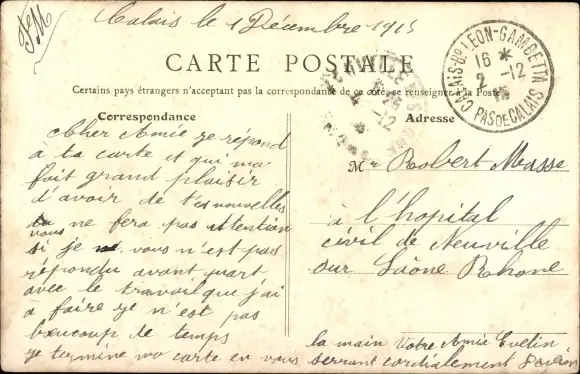 FM
Calais le 1 Décembre 1915
CARTE POSTALE
Certains pays étrangers n'acceptant pas la correspondance de ce côté, se renseigner à la Poste
CALAIS-Bd LEON-GAMBETTA
16 *
2 -12
15
PAS DE CALAIS
Correspondance
Cher Amie je répond
a ta carte et qui ma
fait grand plaisir
d'avoir de tes nouvelles
ne fera pas attention
vous
si je vous n'est pas
répondu avant quart
avec le travail que j'ai
a faire je n'est pas
beaucoup de temps
je termine ma carte en vous serrant cordialement
la main Votre Amie Evelin
Adresse
Mr Robert Masse
à l'hopital
civil de Neuville
sur Saône Rhone